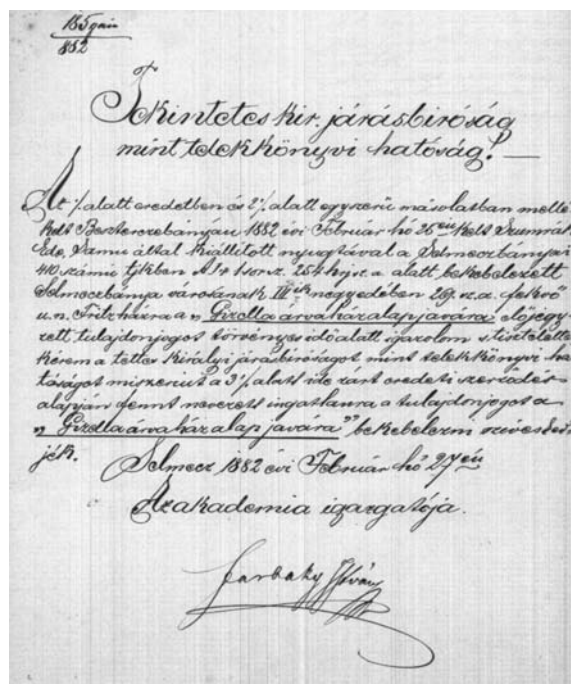 882
Tekintetes kir. járásbiróság
mint telekkönyvi hatóság!
Az 1/. alatt eredetben és 2/. alatt egyszerü másolatban mellé
kelt Beszterczebányán 1882 évi Február hó 25 én kelt Szumrák
Ede, Samu által kiállitott nyugtával a Selmeczbányai
410 számu tjkben A I 1 sorsz. 254 hrsz. a alatt bekebelezett
Selmeczbánya városának III ik negyedében 29. sz. a. fekvő
u.n. Fritz házra a „Gizella árvaház alap javára" előjegy-
zett tulajdonjogot törvényes idő alatt igazolom s tisztelettel
kérem a tettes királyi járásbiróságot mint telekkönyvi ha
tóságot miszerint a 3/. alatt ide zárt eredeti szerződés
alapján fennt nevezett ingatlanra a tulajdonjogot a
„Gizella árvaház alap javára" bekebelezni szivesked
jék.
Selmecz 1882 évi Február hó 27 én
Az akademia igazgatója.
Farbaky István